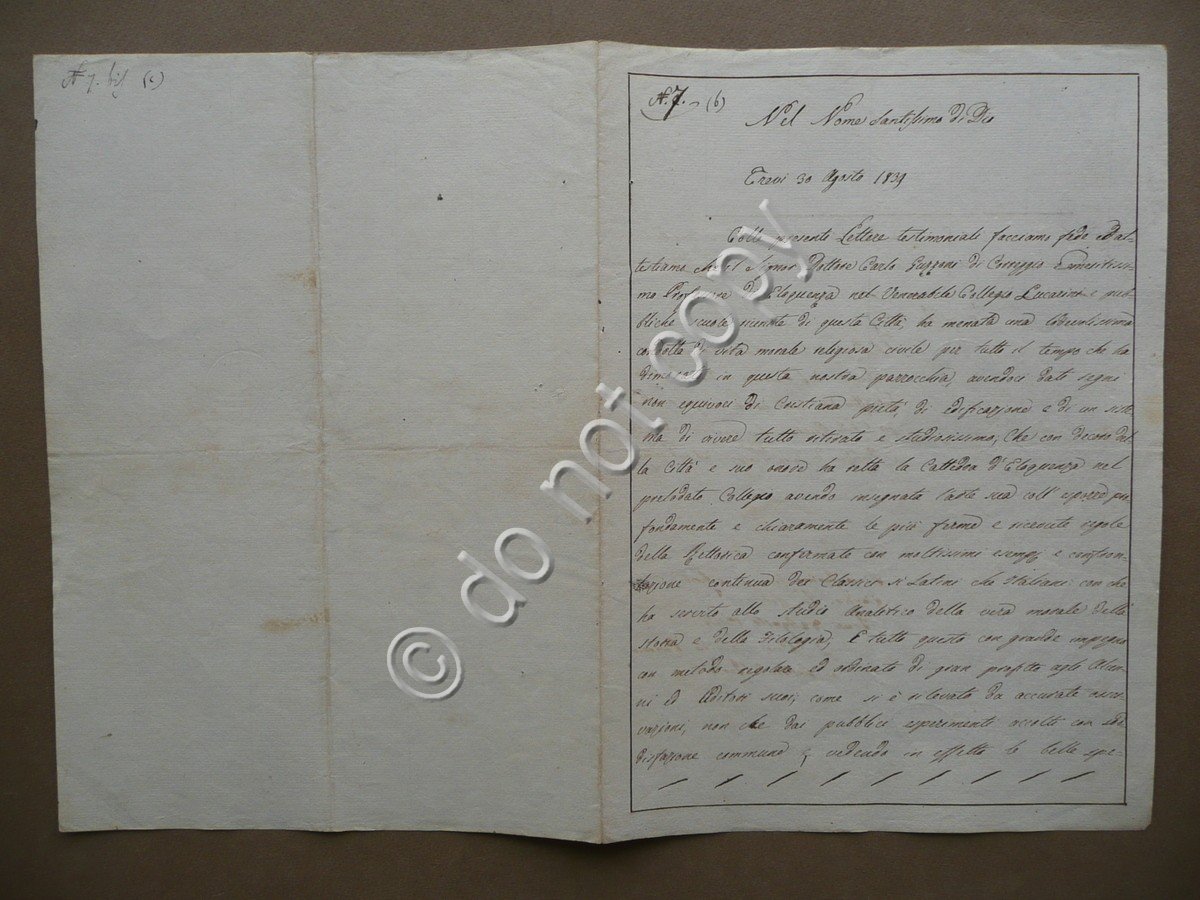 N. 7. bis (c)
N. 7. - (b)
Nel Nome Santissimo di Dio
Trevi 30 Agosto 1839
Colle presenti Lettere testimoniali facciamo fede ed at-
testiamo che il Signor Dottore Carlo di Coreggio Emeritissi-
mo Professore di Eloquenza nel Venerabile Collegio Lucarini e pub-
bliche scuole riunite di questa Città, ha menata una lodevolissima
condotta di vita morale religiosa civile per tutto il tempo che ha
dimorato in questa nostra parrocchia, avendoci dati segni
non equivoci di Cristiana pietà, di edificazione e di un siste-
ma di vivere tutto ritirato e studiosissimo; Che con decoro del-
la Città e suo onore ha retta la Cattedra d'Eloquenza nel
prelodato Collegio avendo insegnata l'arte sua coll' esporre pro-
fondamente e chiaramente le più ferme e ricevute regole
della Rettorica confermate con moltissimi esempj e confron-
tazione continua dei Classici sì Latini che Italiani: con che
ha servito allo studio Analitico della vera morale della
storia e della Filologia, E tutto questo con grande impegno
con metodo regolare ed ordinato di gran profitto agli Alun-
ni ed Uditori suoi, come si è rilevato da accurate osser-
vazioni, non che dai pubblici esperimenti accolti con sod-
disfazione commune ; vedendo in effetto le belle spe-
© do not copy